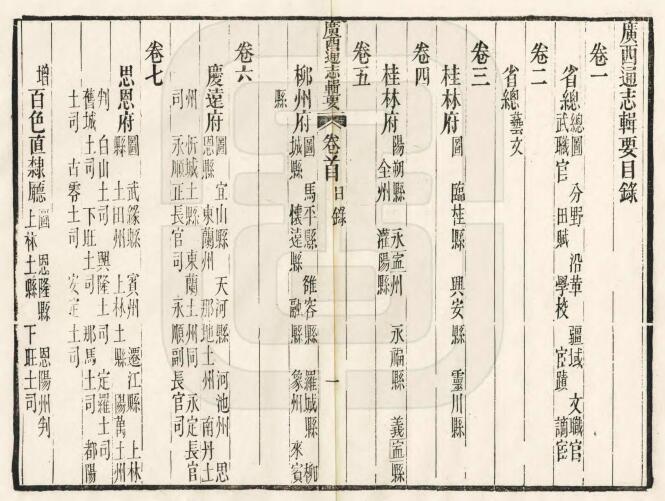 廣西通志輯要目錄
卷一
省總總圖 分野 沿革 疆域 文職官
武職官 田賦 學校 宦蹟 謫宦
卷二
省總藝文
卷三
桂林府圖 臨桂縣 興安縣 靈川縣
卷四
桂林府陽朔縣 永寍州 永福縣 義寍縣
全州 灌陽縣
卷五
廣西通志輯要 卷首目錄 一
柳州府圖 馬平縣 雒容縣 羅城縣 柳
城縣 懷遠縣 融縣 象州 來賓
縣
卷六
慶遠府圖 宜山縣 天河縣 河池州 思
恩縣 東蘭州 那地土州 南丹土
州 忻城土縣 東蘭土州同 永定長官
司 永順正長官司 永順副長官司
卷七
思恩府圖 武緣縣 賓州 遷江縣 上林
縣 土田州 上林土縣 陽萬土州
判 白山土司 興隆土司 定羅土司
舊城土司 下旺土司 那馬土司 都陽
土司 古零土司 安定土司
增百色直隸廳圖 恩隆縣 恩陽州判
上林土縣 下旺土司